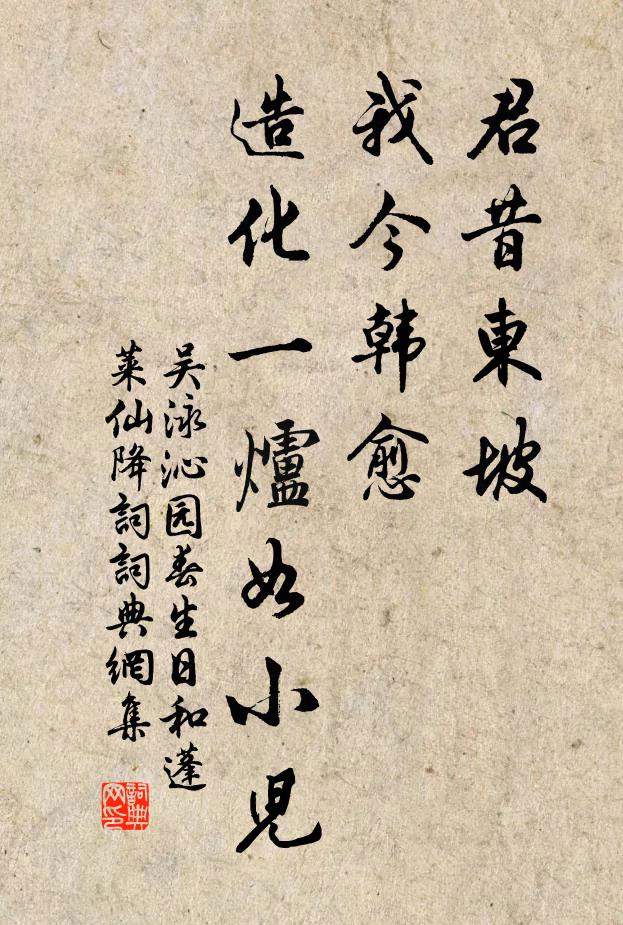 君昔東坡
我今韩愈
造化一爐如小児
吴泳沁园春生日和蓬
莱仙降詞詞典網集
詞典网印